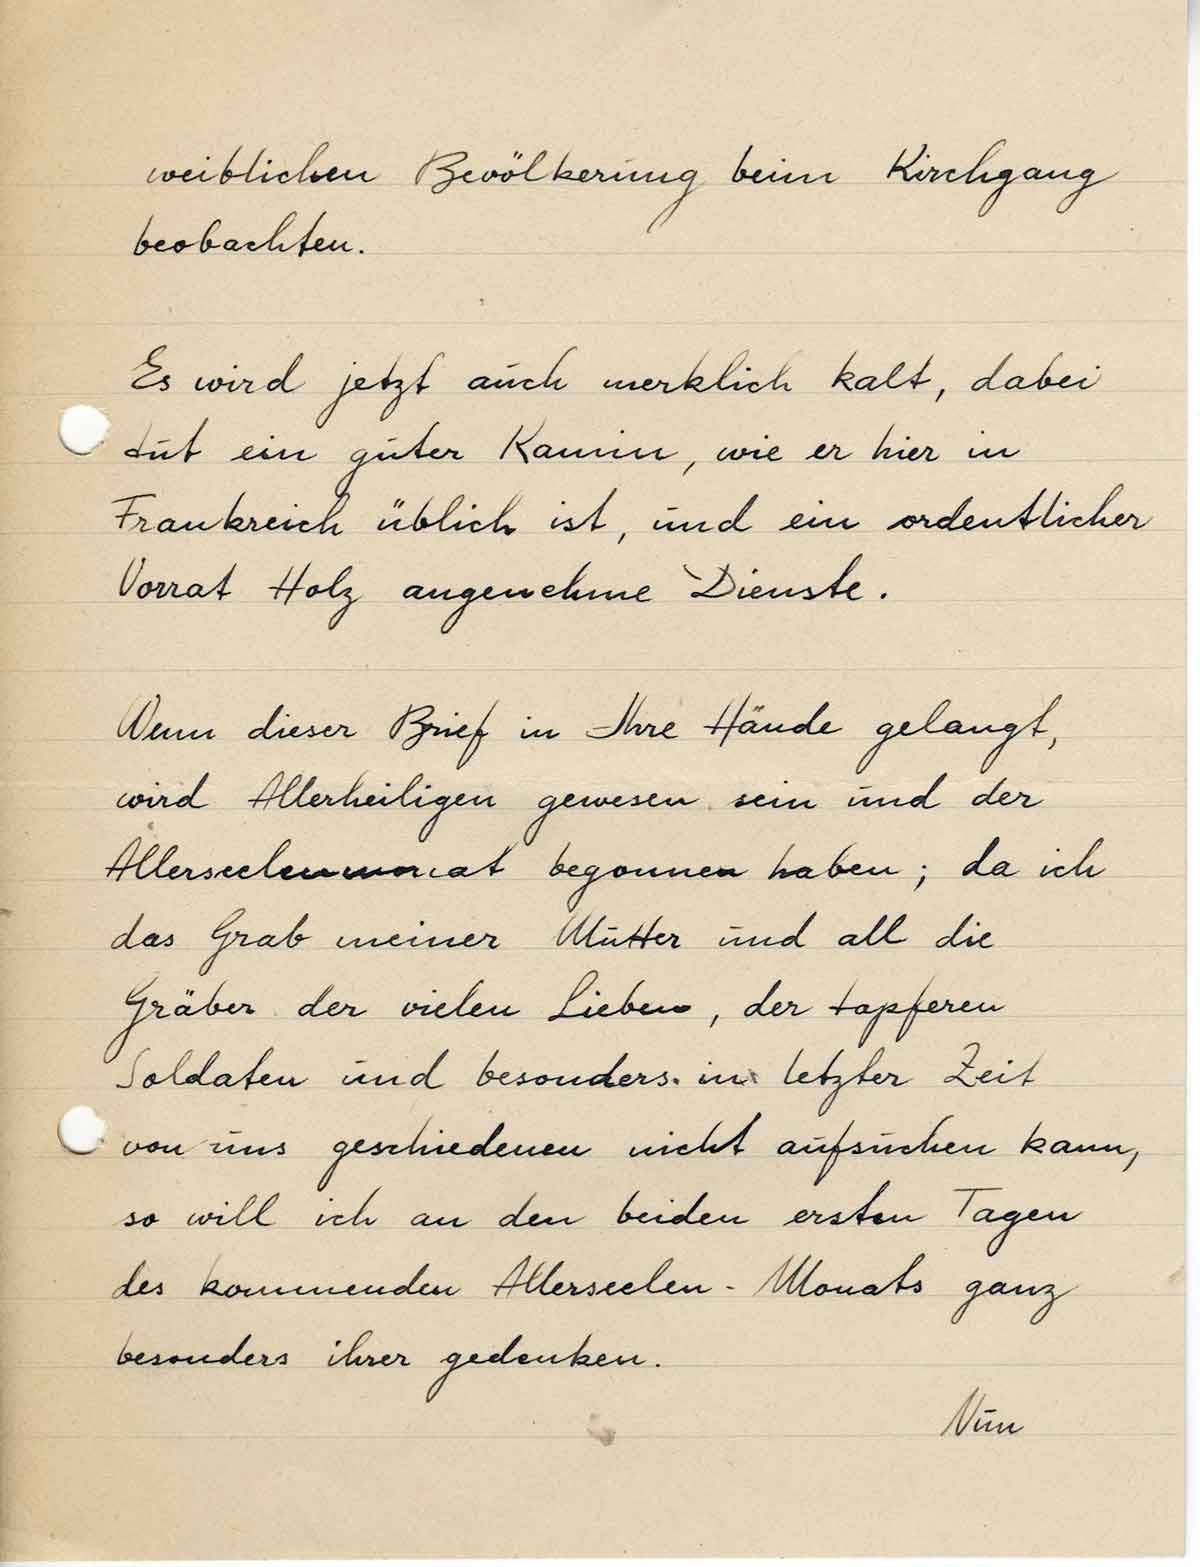 weiblichen Bevölkerung beim Kirchgang
beobachten.
Es wird jetzt auch merklich kalt, dabei
tut ein guter Kamin, wie er hier in
Frankreich üblich ist, und ein ordentlicher
Vorrat Holz angenehme Dienste.
Wenn dieser Brief in Ihre Hände gelangt,
wird Allerheiligen gewesen sein und der
Allerseelenmonat begonnen haben; da ich
das Grab meiner Mutter und all die
Gräber der vielen Lieben, der tapferen
Soldaten und besonders in letzter Zeit
von uns geschiedenen nicht aufsuchen kann,
so will ich an den beiden ersten Tagen
des kommenden Allerseelen-Monats ganz
besonders ihrer gedenken.
Nun